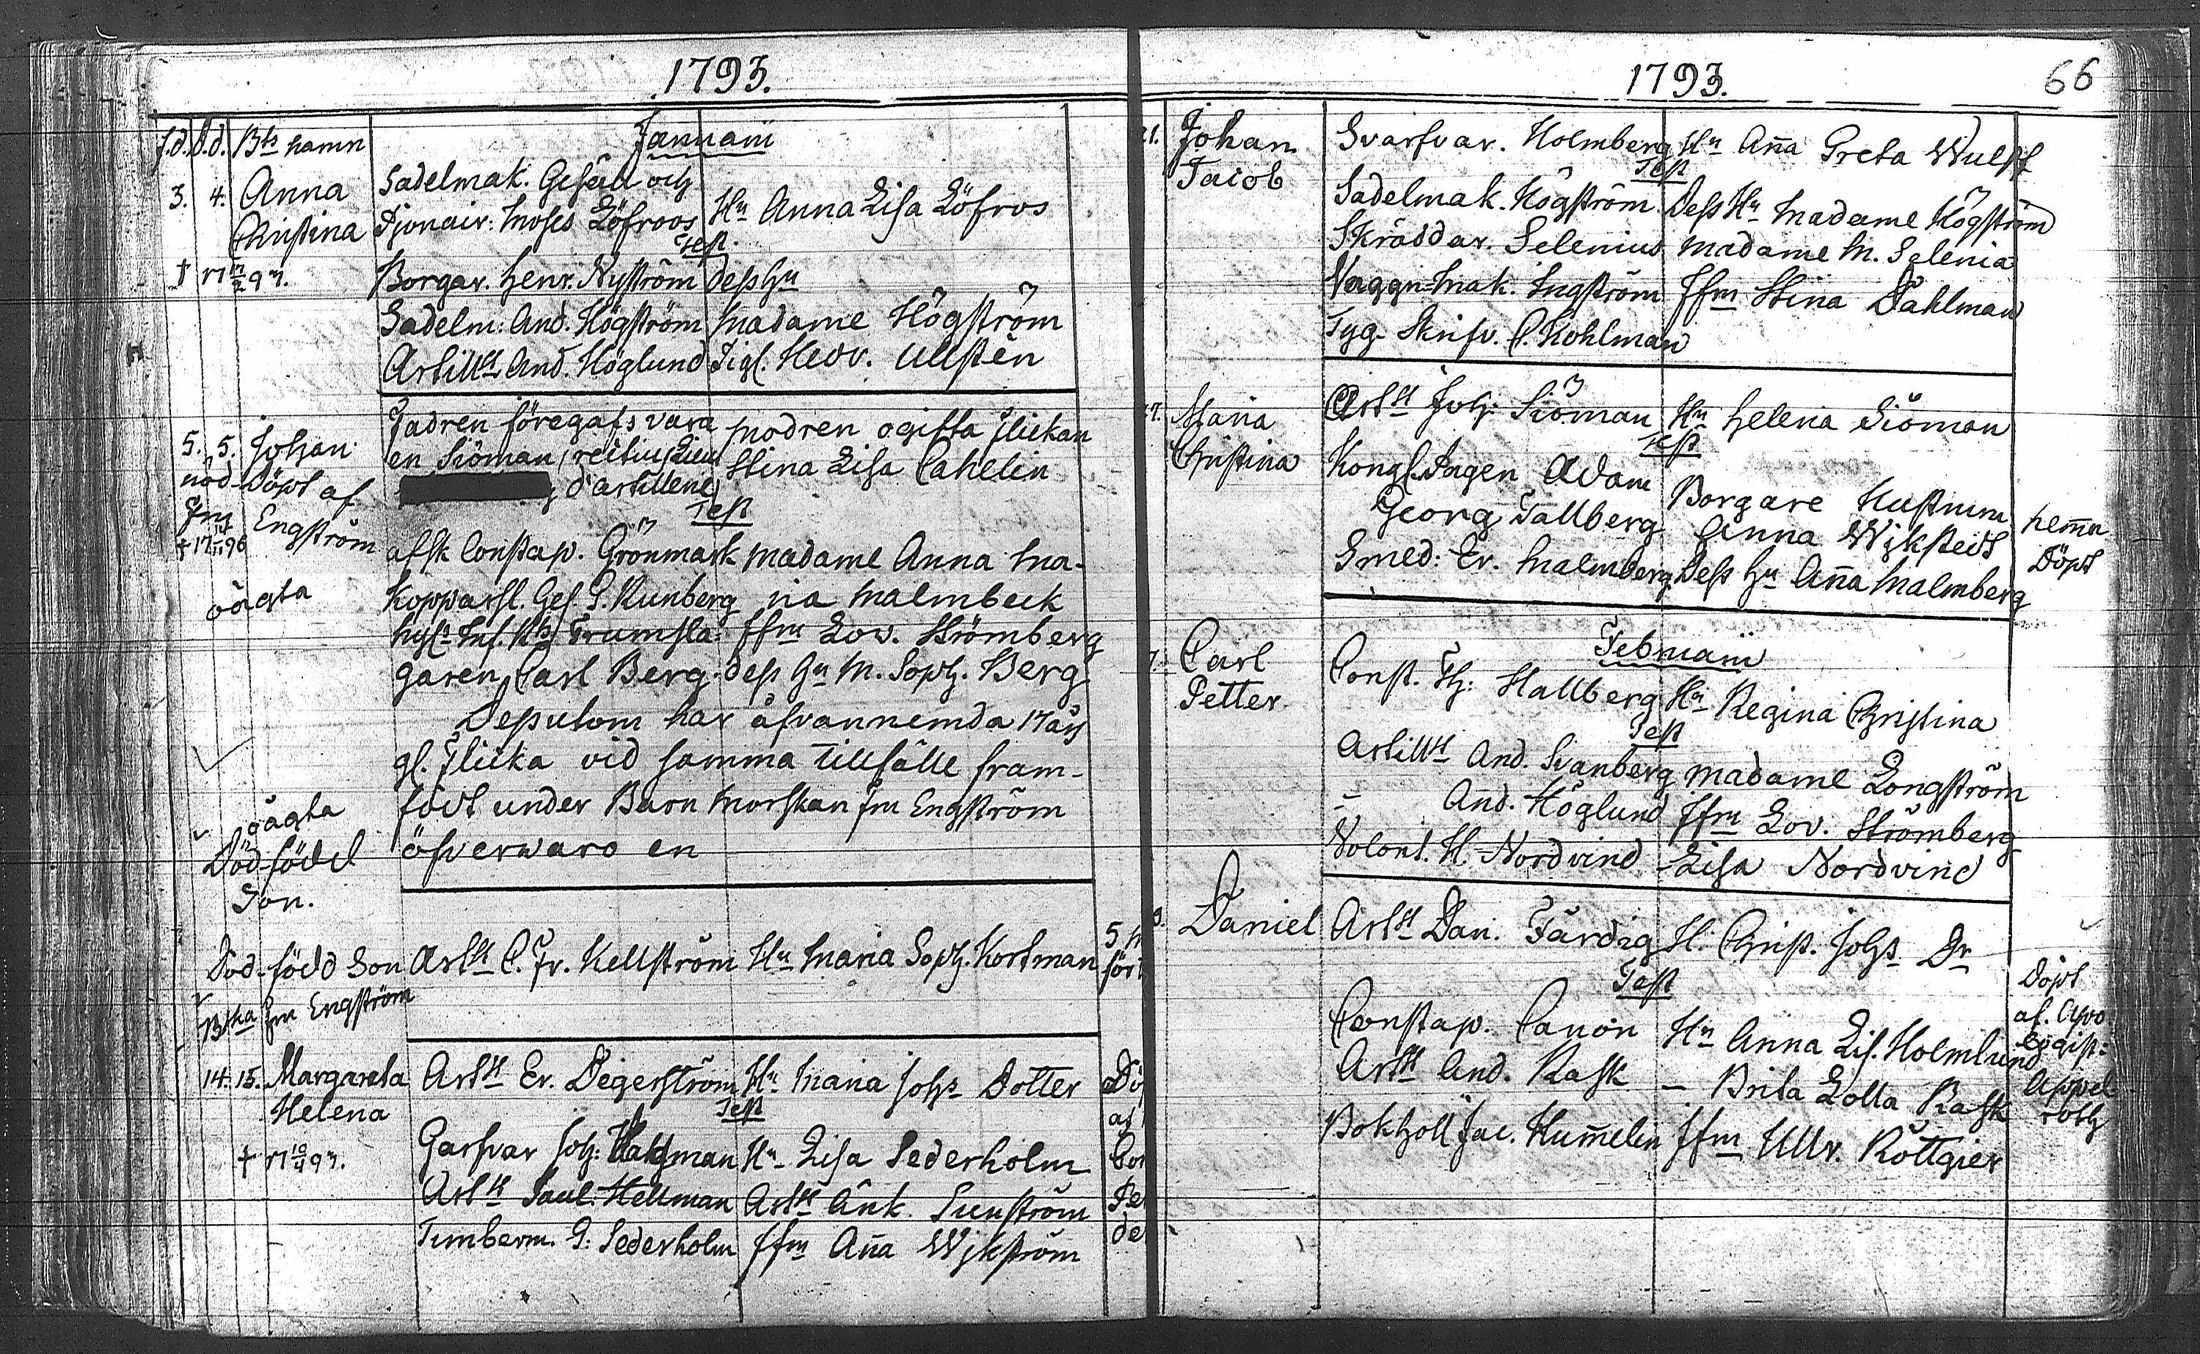 1793.
f.d. D.d. Bts namn
Januarii
3. 4. Anna Christina
Sadelmak. Gesäll och
Pionair: Moses Löfroos Hu Anna Lisa Löfros
Test.
† 17 93.
Borgar. Henr. Nyström dess Hu
Sadelm: And. Högström Madame Högström
Artillt And. Höglund Pigl. Hedv. Ullsten
5. 5. Johan
nöd-döpt af
fru Engström
† 17 96
oägta
Fadren föregafs vara Modren ogifta flickan
en Siöman, Stina Lisa Cahelin
d'artillerie
Test
afsk Constap. Grönmark Madame Anna Ma-
Kopparsl. Ges. P. Runberg ria Malmbeck
Trumsla- Jfru Lov. Strömberg
garen Carl Berg. dess Hu M. Soph. Berg
Dessutom har åfvannemda 17 års
gl. flicka vid samma tillfälle fram-
födt under Barnmorskan fru Engström
öfverwaro en
oägta
Död-född
Son.
Död-född Son Artt C. Fr. Kellström Hu Maria Soph. Kortman
5
för
Bska fru Engström
14. 15. Margareta Helena
Artt Er. Degerström Hu Maria Johs Dotter
Test
† 17 93.
Garfvar Joh: Hu Lisa Sederholm
Artt Paul Hellman Artt Änk. Sunström
Timberm. P. Sederholm Jfru Ana Wikström
1793.
66
21. Johan Jacob
Svarfvar. Holmberg Hu Ana Greta Wulff
Test
Sadelmak. Högström Dess Hu Madame Högström
Skräddar. Selenius Madame M. Selenia
Vaggn-Mak. Ingström Jfru Stina Dahlman
Tyg. Skrifv. C. Kohlman
7. Maria Christina
Artt Joh: Siöman Hu Helena Siöman
Test
Kongl. Ingen Adam Borgare Hustrun
Georg Tallberg Anna Wikstedt
Smed: Er. Malmberg Dess Hu Ana Malmberg
hemn
Döpt
Februarii
7. Carl Petter
Const. Th: Hallberg Hu Regina Christina
Test
Artillt And. Svanberg Madame Longström
— And. Höglund Jfru Lov. Strömberg
Volont. H. Nordvind Lisa Nordvind
9. Daniel
Artt Dan. Färdig H. Christ. Johs Dr
Test
Constap. Canon Hu Anna Lis. Holmlund
Artt And. Rask — Brita Lotta Rask
Bokholl Jac. Humelin Jfru Ullr. Röttgier
Döpt
af.
Appel
roth